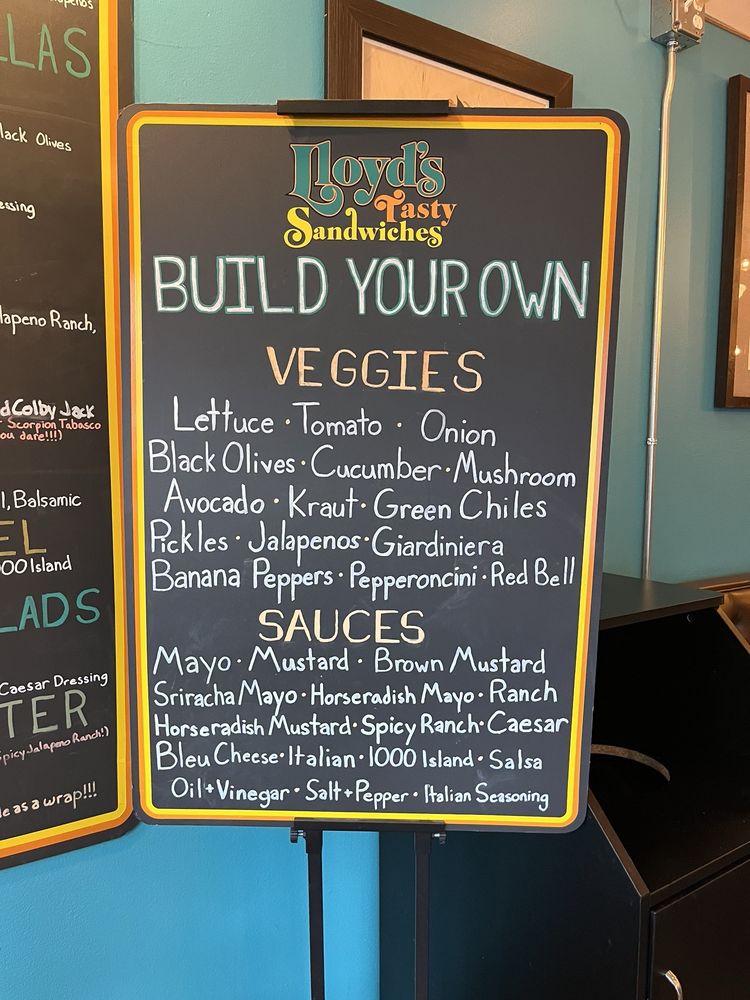 LLAS
Black Olives
apeno Ranch,
Colby Jack
Scorpion Tabasco
ou dare!!!)
Balsamic
EL
000 Island
LADS
Caesar Dressing
TER
Spicy Jalapeno Ranch!)
as a wrap!!!
Lloyd's
Tasty
Sandwiches
BUILD YOUR OWN
VEGGIES
Lettuce · Tomato · Onion
Black Olives · Cucumber · Mushroom
Avocado · Kraut · Green Chiles
Pickles · Jalapenos · Giardiniera
Banana Peppers · Pepperoncini · Red Bell
SAUCES
Mayo · Mustard · Brown Mustard
Sriracha Mayo · Horseradish Mayo · Ranch
Horseradish Mustard · Spicy Ranch · Caesar
Bleu Cheese · Italian · 1000 Island · Salsa
Oil + Vinegar · Salt + Pepper · Italian Seasoning